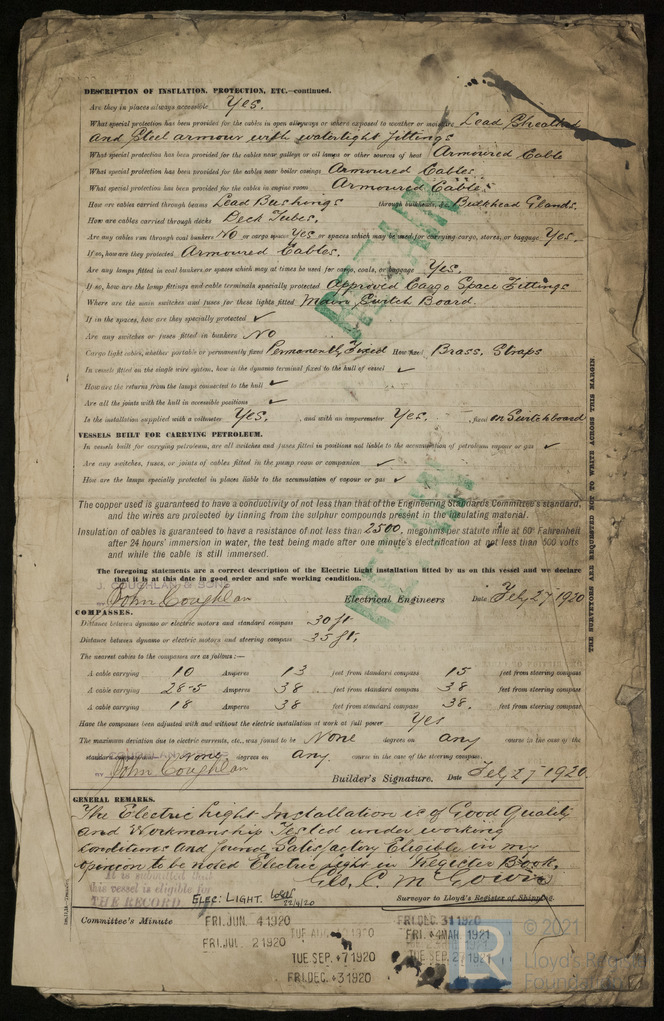 DESCRIPTION OF INSULATION, PROTECTION, ETC.—continued.
Are they in places always accessible Yes.
What special protection has been provided for the cables in open alleyways or where exposed to weather or moisture Lead Sheathed
and Steel armour with watertight fittings
What special protection has been provided for the cables near galleys or oil lamps or other sources of heat Armoured Cable
What special protection has been provided for the cables near boiler casings Armoured Cables.
What special protection has been provided for the cables in engine room Armoured Cables.
How are cables carried through beams Lead Bushings through bulkheads, &c. Bulkhead Glands.
How are cables carried through decks Deck Tubes.
Are any cables run through coal bunkers No or cargo spaces Yes or spaces which may be used for carrying cargo, stores, or baggage Yes.
If so, how are they protected Armoured Cables.
Are any lamps fitted in coal bunkers or spaces which may at times be used for cargo, coals, or baggage Yes.
If so, how are the lamp fittings and cable terminals specially protected Approved Cargo Space Fittings
Where are the main switches and fuses for these lights fitted Main Switch Board.
If in the spaces, how are they specially protected ✓
Are any switches or fuses fitted in bunkers No
Cargo light cables, whether portable or permanently fixed Permanently Fixed How fixed Brass. Straps
In vessels fitted on the single wire system, how is the dynamo terminal fixed to the hull of vessel ✓
How are the returns from the lamps connected to the hull ✓
Are all the joints with the hull in accessible positions ✓
Is the installation supplied with a voltmeter Yes. , and with an amperemeter Yes. , fixed on Switchboard
VESSELS BUILT FOR CARRYING PETROLEUM.
In vessels built for carrying petroleum, are all switches and fuses fitted in positions not liable to the accumulation of petroleum vapour or gas ✓
Are any switches, fuses, or joints of cables fitted in the pump room or companion ✓
How are the lamps specially protected in places liable to the accumulation of vapour or gas ✓
The copper used is guaranteed to have a conductivity of not less than that of the Engineering Standards Committee's standard,
and the wires are protected by tinning from the sulphur compounds present in the insulating material.
Insulation of cables is guaranteed to have a resistance of not less than 2500, megohms per statute mile at 60° Fahrenheit
after 24 hours' immersion in water, the test being made after one minute's electrification at not less than 500 volts
and while the cable is still immersed.
The foregoing statements are a correct description of the Electric Light installation fitted by us on this vessel and we declare
that it is at this date in good order and safe working condition.
J. COUGHLAN & SONS
John Coughlan Electrical Engineers Date Feby 27 1920
COMPASSES.
Distance between dynamo or electric motors and standard compass 30 ft.
Distance between dynamo or electric motors and steering compass 35 ft.
The nearest cables to the compasses are as follows:—
A cable carrying 10 Amperes 13 feet from standard compass 15 feet from steering compass
A cable carrying 28-5 Amperes 38 feet from standard compass 38 feet from steering compass
A cable carrying 18 Amperes 38 feet from standard compass 38. feet from steering compass
Have the compasses been adjusted with and without the electric installation at work at full power Yes
The maximum deviation due to electric currents, etc., was found to be None degrees on any course in the case of the
standard compass and None degrees on any course in the case of the steering compass.
BY John Coughlan Builder's Signature. Date Feby 27 1920.
GENERAL REMARKS.
The Electric Light Installation is of Good Quality
and Workmanship Tested under working
conditions and found Satisfactory Eligible in my
opinion to be noted Electric Light in Register Book.
Geo. C. McGowin
It is submitted that
this vessel is eligible for
THE RECORD. ELEC: LIGHT. 22/4/20 Surveyor to Lloyd's Register of Shipping.
Committee's Minute FRI. JUN. 4 1920 FRI. DEC. 31 1920
FRI. JUL. 2 1920 TUE AUG 1920 FRI. 4 MAR. 1921
TUE SEP. 7 1920 TUE SEP. 27 1921
FRI. DEC. 3 1920
RETAIN
RETAIN
THE SURVEYORS ARE REQUESTED NOT TO WRITE ACROSS THIS MARGIN
© 2021
LR
Lloyd's Register
Foundation